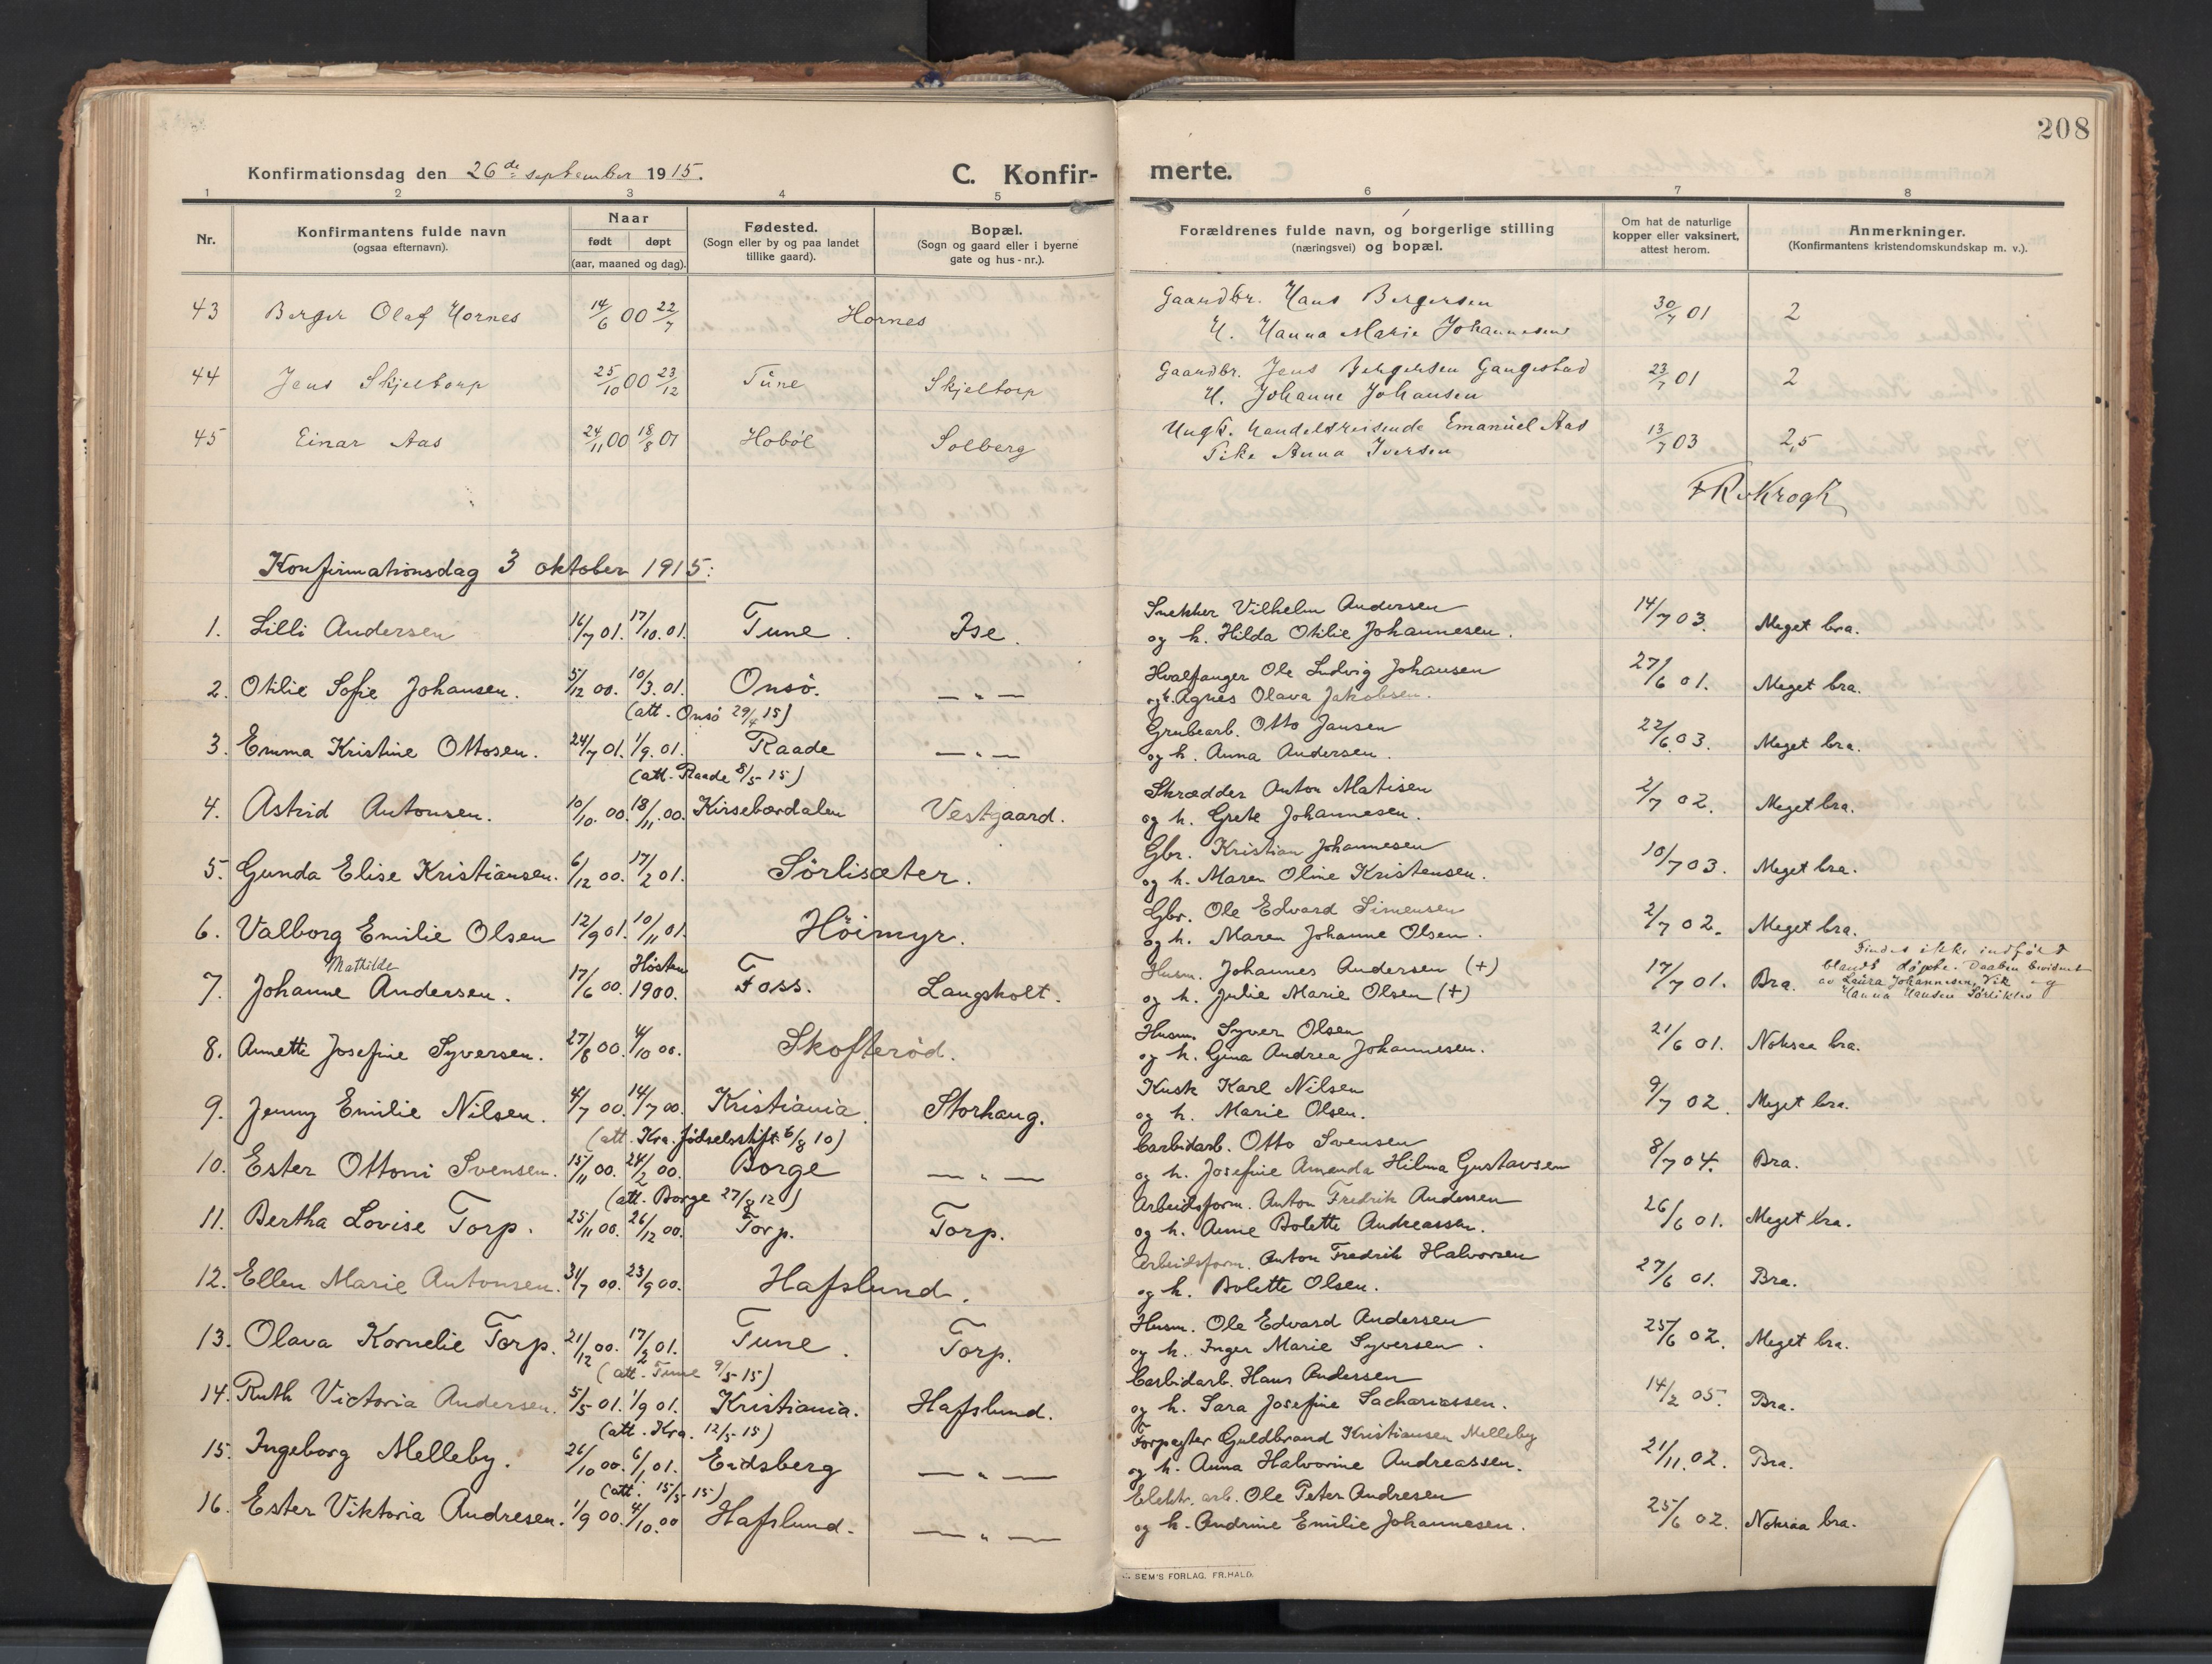 208
Konfirmationsdag den 26de september 1915.
C. Konfir-
merte.
1 2 3 4 5 6 7 8
Nr.
Konfirmantens fulde navn
(ogsaa efternavn).
Naar
født døpt
(aar, maaned og dag).
Fødested.
(Sogn eller by og paa landet
tillike gaard).
Bopæl.
(Sogn og gaard eller i byerne
gate og hus-nr.).
Forældrenes fulde navn, og borgerlige stilling
(næringsvei) og bopæl.
Om hat de naturlige
kopper eller vaksinert,
attest herom.
Anmerkninger.
(Konfirmantens kristendomskundskap m. v.).
43 Berger Olaf Hornes 14/6 00 22/7 Hornes Gaardbr. Hans Bergersen 30/7 01 2
H. Hanna Marie Johannesen
44 Jens Skjeltorp 25/10 00 23/12 Tune Skjeltorp Gaardbr. Jens Bergersen Gangestad 23/7 01 2
H. Johanne Johansen
45 Einar Aas 24/11 00 18/8 01 Hobøl Solberg Ungk. Handelsreisende Emanuel Aas 13/7 03 2,5
Pike Anna Iversen
Konfirmationsdag 3 oktober 1915:
1. Lilli Andersen 16/7 01. 17/10. 01. Tune. Ise. Snekker Vilhelm Andersen 14/7 03. Meget bra.
og h. Hilda Otilie Johannesen.
2. Otilie Sofie Johansen. 5/12 00. 10/3. 01. Onsö. — " — Hvalfanger Ole Ludvig Johansen 27/6 01. Meget bra.
(att. Onsö 29/4 15) og h. Agnes Olava Jakobsen.
3. Emma Kristine Ottosen. 24/7 01. 1/9. 01. Raade — " — Grubearb. Otto Jansen 22/6. 03. Meget bra.
(att. Raade 8/5 15) og h. Anna Andersen.
4. Astrid Antonsen. 10/10. 00. 18/11. 00. Kirsebærdalen Vestgaard. Skrædder Anton Matisen 2/7 02. Meget bra.
og h. Grete Johannesen.
5. Gunda Elise Kristiansen. 6/12 00. 17/2 01. Sörlisæter. Gbr. Kristian Johannesen 10/7 03. Meget bra.
og h. Maren Oline Kristensen.
6. Valborg Emilie Olsen 12/9 01. 10/11 01. Höimyr. Gbr. Ole Edvard Simensen 2/7 02. Meget bra.
og h. Maren Johanne Olsen.
7. Johanne Mathilde Andersen. 17/6 00. Høsten 1900. Foss. Langsholt. Husm. Johannes Andersen (+) 17/7 01. Bra. Findes ikke indført
blandt døpte. Daaben bevidnet
av Laura Johannesen, Vik og
Hanna Hansen Sørliklev
og h. Julie Marie Olsen (+)
8. Annette Josefine Syversen. 27/8 00. 4/10 00. Skofteröd. Husm. Syver Olsen 21/6 01. Noksaa bra.
og h. Gina Andrea Johannesen.
9. Jenny Emilie Nilsen. 4/7 00. 14/7 00. Kristiania. Storhaug. Kusk Karl Nilsen 9/7 02. Meget bra.
(att. Kra. fødselsstift. 6/8 10) og h. Marie Olsen.
10. Ester Ottoni Svensen. 15/11 00. 24/2 00. Borge — " — Carbidarb. Otto Svensen 8/7 04. Bra.
(att. Borge 27/8 12) og h. Josefine Amanda Hilma Gustavsen
11. Bertha Lovise Torp. 25/11 00. 26/12 00. Torp. Torp. Arbeidsform. Anton Fredrik Andersen 26/6 01. Meget bra.
og h. Anne Bolette Andreassen.
12. Ellen Marie Antonsen. 31/7 00. 23/9 00. Hafslund. Arbeidsform. Anton Fredrik Halvorsen 27/6 01. Bra.
og h. Bolette Olsen.
13. Olava Kornelie Torp. 21/12 00. 17/2 01. Tune. Torp. Husm. Ole Edvard Andersen 25/6 02. Meget bra.
(att. Tune 9/5 15) og h. Inger Marie Syversen.
14. Ruth Victoria Andersen. 5/5 01. 1/9 01. Kristiania. Hafslund. Carbidarb. Hans Andersen 14/2 05. Bra.
(att. Kra. 12/5 15) og h. Sara Josefine Sachariassen.
15. Ingeborg Melleby. 26/10 00. 6/1 01. Eidsberg — " — Forpagter Guldbrand Kristiansen Melleby 21/11. 02. Bra.
(att. 15/5 15) og h. Anna Halvorine Andreassen.
16. Ester Viktoria Andresen. 1/9 00. 4/10. 00 Hafslund. — " — Elektr. arb. Ole Peter Andresen 25/6 02. Noksaa bra.
og h. Andrine Emilie Johannesen.
SEM'S FORLAG, FR.HALD.